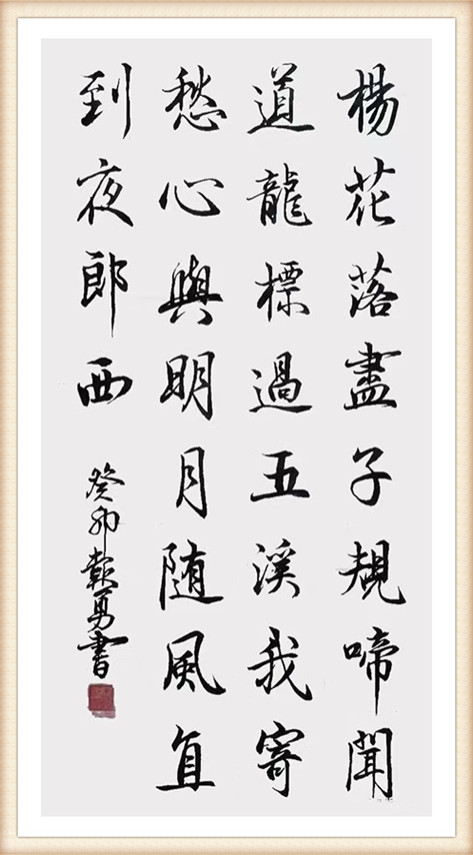 楊花落盡子規啼聞
道龍標過五溪我寄
愁心與明月随風直
到夜郎西
癸卯報勇書